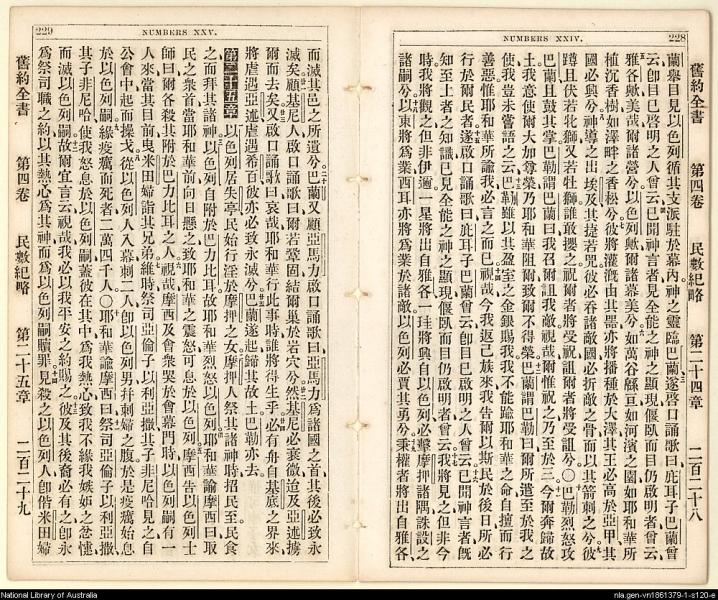 228
NUMBERS XXIV.
舊約全書 第四卷 民數紀略 第二十四章 二百二十八
蘭舉目見以色列循其支派駐於幕內神之靈臨巴蘭遂啓口誦歌曰庇耳子巴蘭曾
云卽目已啓明之人曾云已聞神言者見全能之神之顯現偃臥而目仍啟明者曾云
雅各歟美哉爾諸營兮以色列歟爾諸幕美兮如萬谷緜亘如河濱之園如耶和華所
植沉香樹如澤畔之香松兮彼將灌漑由其器亦將播種於大澤其王必高於亞甲其
國必興兮神導之出埃及其捷若兕彼必吞諸敵國必折敵之骨而以其箭刺之兮彼
蹲且伏若牝獅又若牡獅誰敢擾之祝爾者將受祝詛爾者將受詛兮〇巴勒烈怒攻
巴蘭且鼓其掌巴勒謂巴蘭曰我召爾詛我敵視哉爾惟祝之乃至於三今爾奔歸故
土我意使爾大加尊榮乃耶和華阻爾致爾不得榮巴蘭謂巴勒曰爾所遣至於我之
使我豈未嘗語之云巴勒雖以其盈室之金銀賜我我不能踰耶和華之命自擅而行
善惡惟耶和華所諭我必言之而已視哉今我返己族來我告爾以斯民於後日所必
行於爾民者遂啟口誦歌曰庇耳子巴蘭曾云卽目已啟明之人曾云已聞神言者旣
知至上者之知識已見全能之神之顯現偃臥而目仍啟明者曾云我將見之但非今
時我將觀之但非伊邇一星將出自雅各一珪將興自以色列必擊摩押諸隅誅設之
諸嗣兮以東將爲業西耳亦將爲業於諸敵以色列必賈其勇兮秉權者將出自雅各
229
NUMBERS XXV.
而滅其邑之所遺兮巴蘭又顧亞馬力啟口誦歌曰亞馬力爲諸國之首其後必致永
滅矣顧基尼人啟口誦歌曰爾若鞏固結爾巢於岩穴兮然基尼必衰微迨及亞述擄
爾而去矣又啟口誦歌曰哀哉耶和華行此事時誰將得生乎必有舟自基底之界來
將虐遇亞述虐遇希百彼亦必致永滅兮巴蘭遂起歸其故土巴勒亦去
第二十五章 以色列居失亭民始行淫於摩押之女摩押人祭其諸神時招民至民食
之而拜其諸神以色列自附於巴力比耳故耶和華烈怒以色列耶和華諭摩西曰取
民之衆首當耶和華前向日懸之致耶和華之震怒可息於以色列摩西告以色列士
師曰爾各殺其附於巴力比耳之人視哉摩西及會衆哭於會幕門時以色列嗣有一
人來當其目前曳米田婦詣其兄弟維時祭司亞倫子以利亞撒其子非尼哈見之自
公會中起而操戈從以色列人入幕刺二人卽以色列男幷刺婦之腹於是疫癘始息
於以色列嗣緣疫癘而死者二萬四千人〇耶和華諭摩西曰祭司亞倫子以利亞撒
其子非尼哈使我怒息於以色列嗣蓋彼在其中爲我熱心致我不緣我嫉妒之忿悽
而滅以色列嗣故爾宜言云視哉我必以我平安之約賜之彼及其後裔必有之卽永
爲祭司職之約以其熱心爲其神而爲以色列嗣贖罪見殺之以色列人卽偕米田婦
舊約全書 第四卷 民數紀略 第二十五章 二百二十九
National Library of Australia
nla.gen-vn1861379-1-s120-e